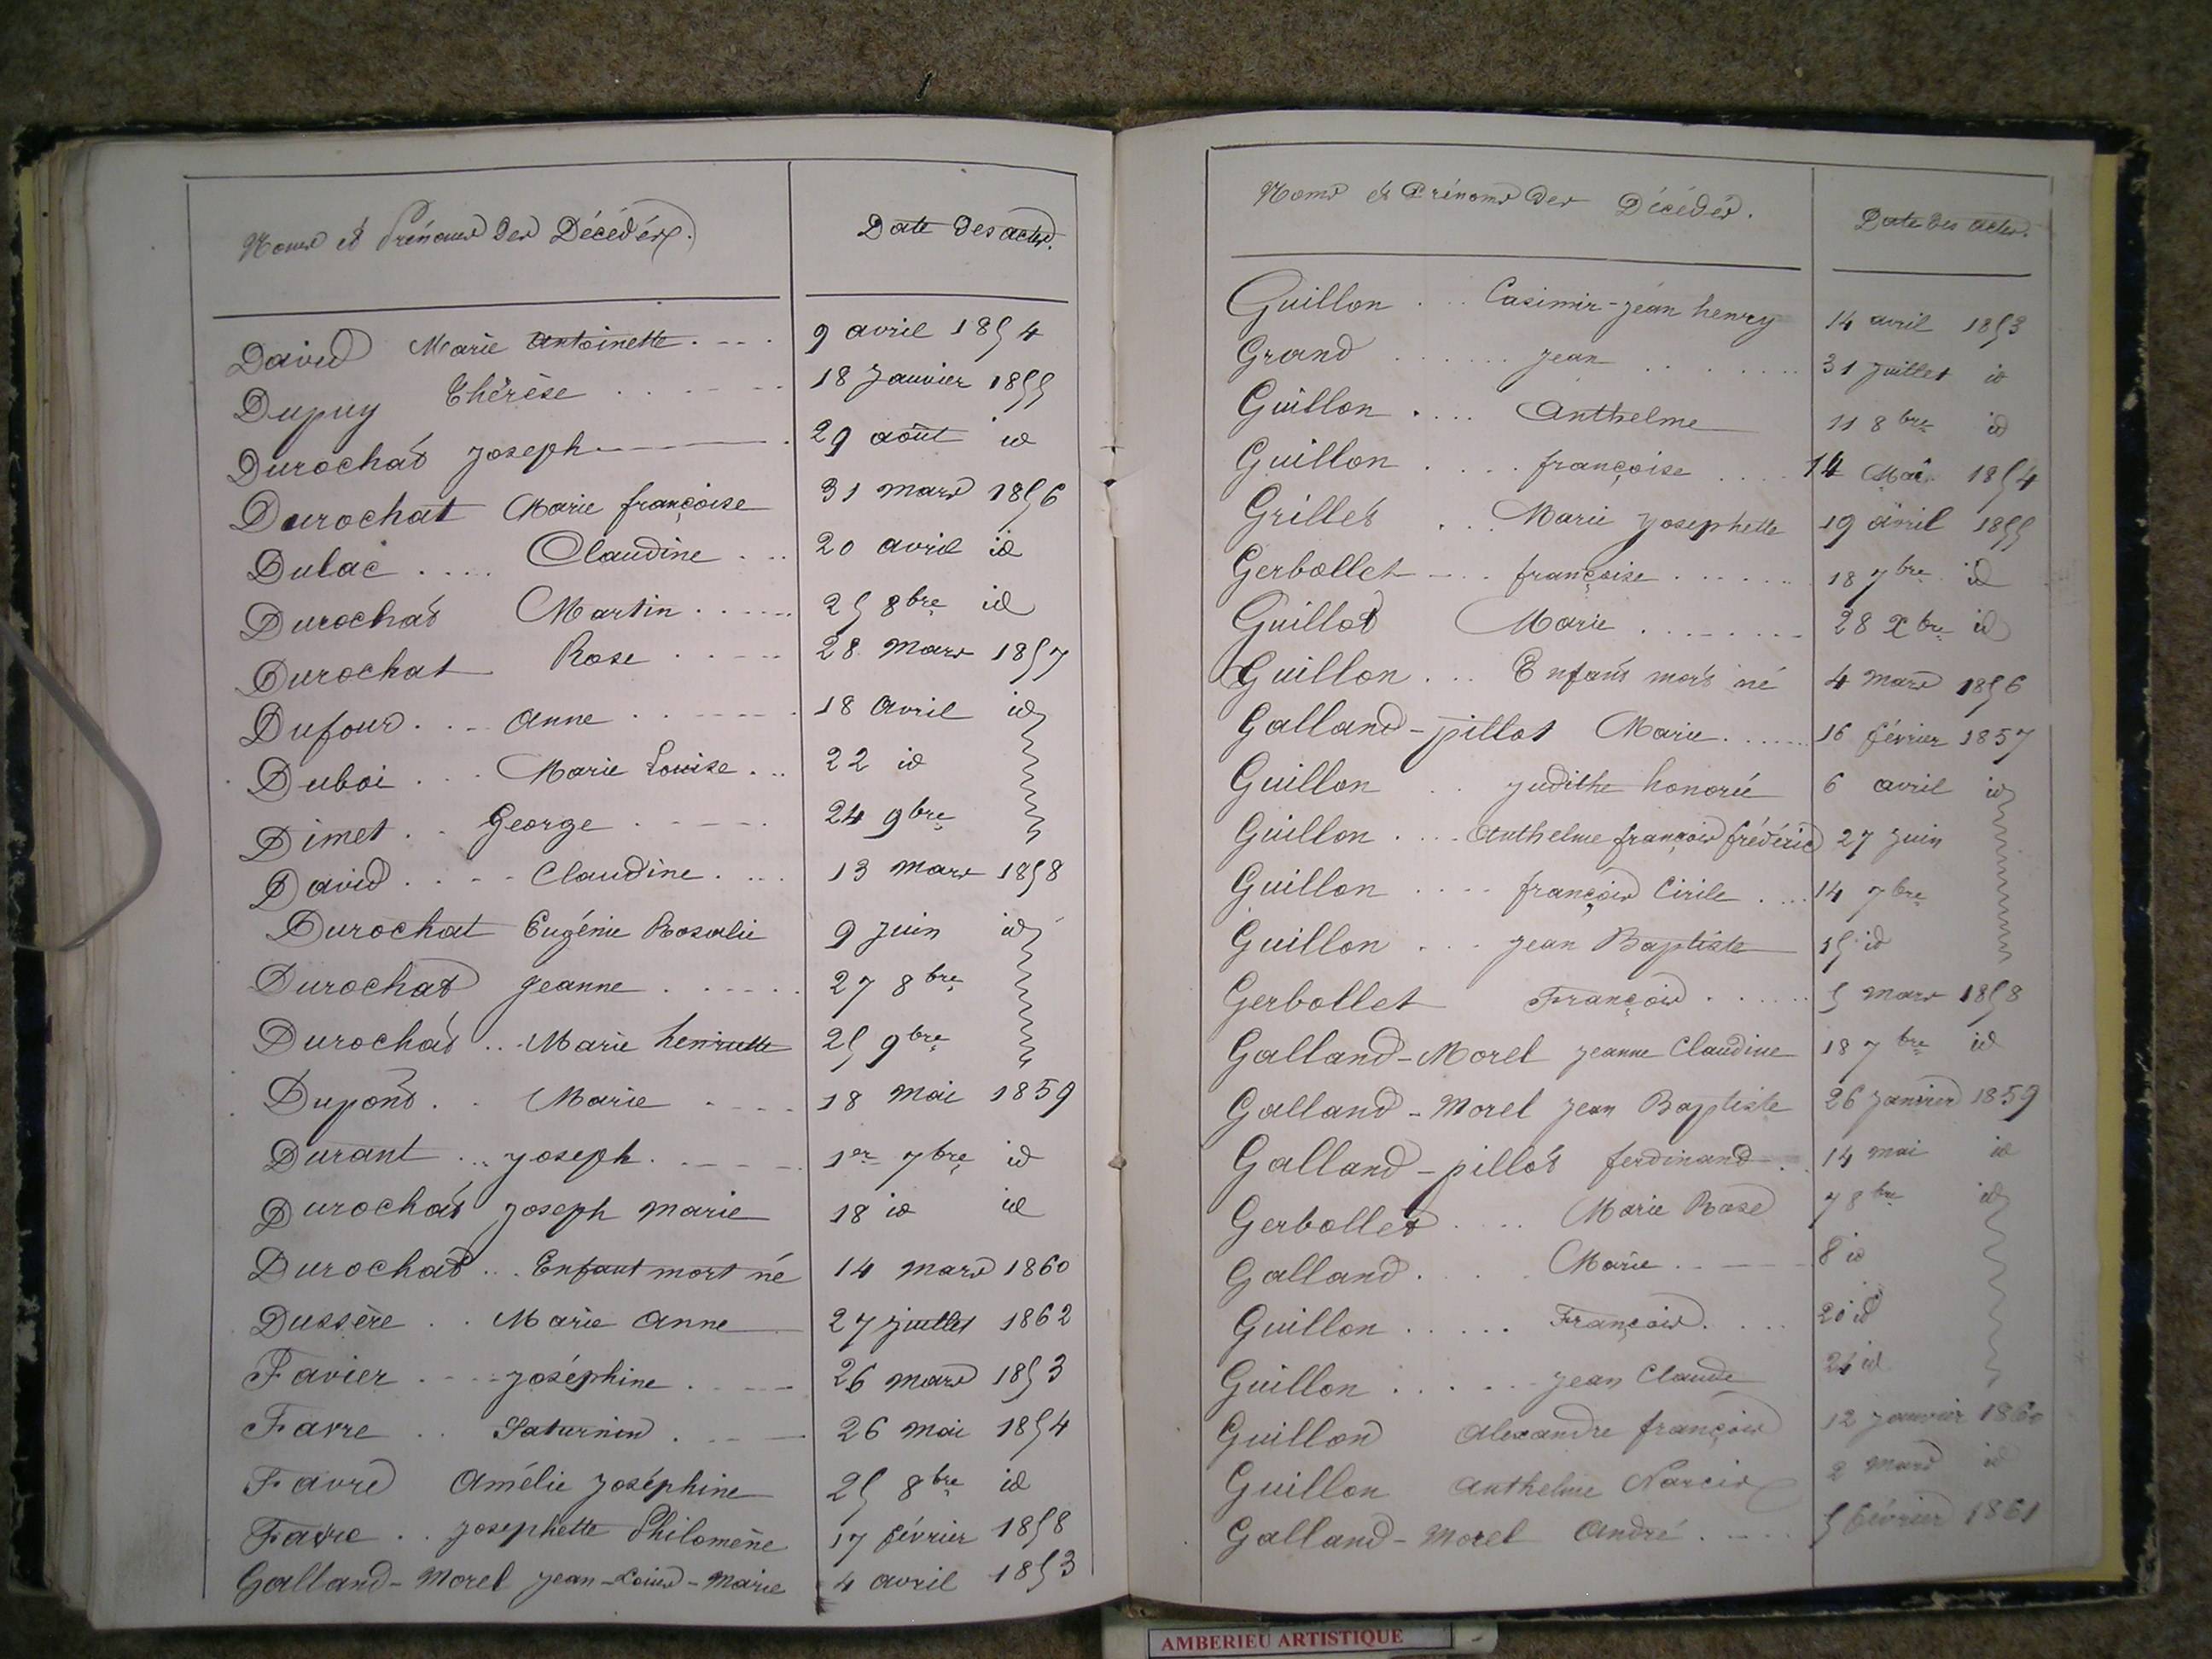 Noms et Prénoms des Décédés. Date des actes.
David Marie Antoinette 9 avril 1854
Dupuy Thérèse 18 Janvier 1855
Durochat Joseph 29 août id
Durochat Marie françoise 31 mars 1856
Dulac Claudine 20 avril id
Durochat Martin 25 8bre id
Durochat Rose 28 mars 1857
Dufour Anne 18 avril id
Duboi Marie Louise 22 id
Dimet George 24 9bre
David Claudine 13 mars 1858
Durochat Eugénie Rosalie 9 juin id
Durochat Jeanne 27 8bre
Durochat Marie henriette 25 9bre
Dupont Marie 18 mai 1859
Durant Joseph 1er 7bre id
Durochat Joseph marie 18 id id
Durochat Enfant mort né 14 mars 1860
Dussère Marie Anne 27 juillet 1862
Favier Joséphine 26 mars 1853
Favre Saturnin 26 mai 1854
Favre Amélie Joséphine 25 8bre id
Favre Josephette Philomène 17 février 1858
Galland-Morel Jean-Louis-Marie 4 avril 1853
Noms et Prénoms des Décédés. Date des actes.
Guillon Casimir-Jean henry 14 avril 1853
Grand Jean 31 Juillet id
Guillon Anthelme 11 8bre id
Guillon françoise 14 Mai 1854
Grillet Marie Josephette 19 avril 1855
Gerbollet françoise 18 7bre id
Guillot Marie 28 Xbre id
Guillon Enfant mort né 4 mars 1856
Galland-pillot Marie 16 février 1857
Guillon Judithe honorée 6 avril id
Guillon Anthelme françois frédéric 27 Juin
Guillon françois Cirile 14 7bre
Guillon Jean Baptiste 15 id
Gerbollet François 5 mars 1858
Galland-Morel Jeanne Claudine 18 7bre id
Galland-Morel Jean Baptiste 26 Janvier 1859
Galland-pillot ferdinand 14 mai id
Gerbollet Marie Rose 7 8bre id
Galland Marie 8 id
Guillon François 20 id
Guillon Jean Claude id
Guillon Alexandre françois 12 Janvier 1860
Guillon Anthelme Narcis 2 mars id
Galland-Morel André 5 février 1861
AMBERIEU ARTISTIQUE